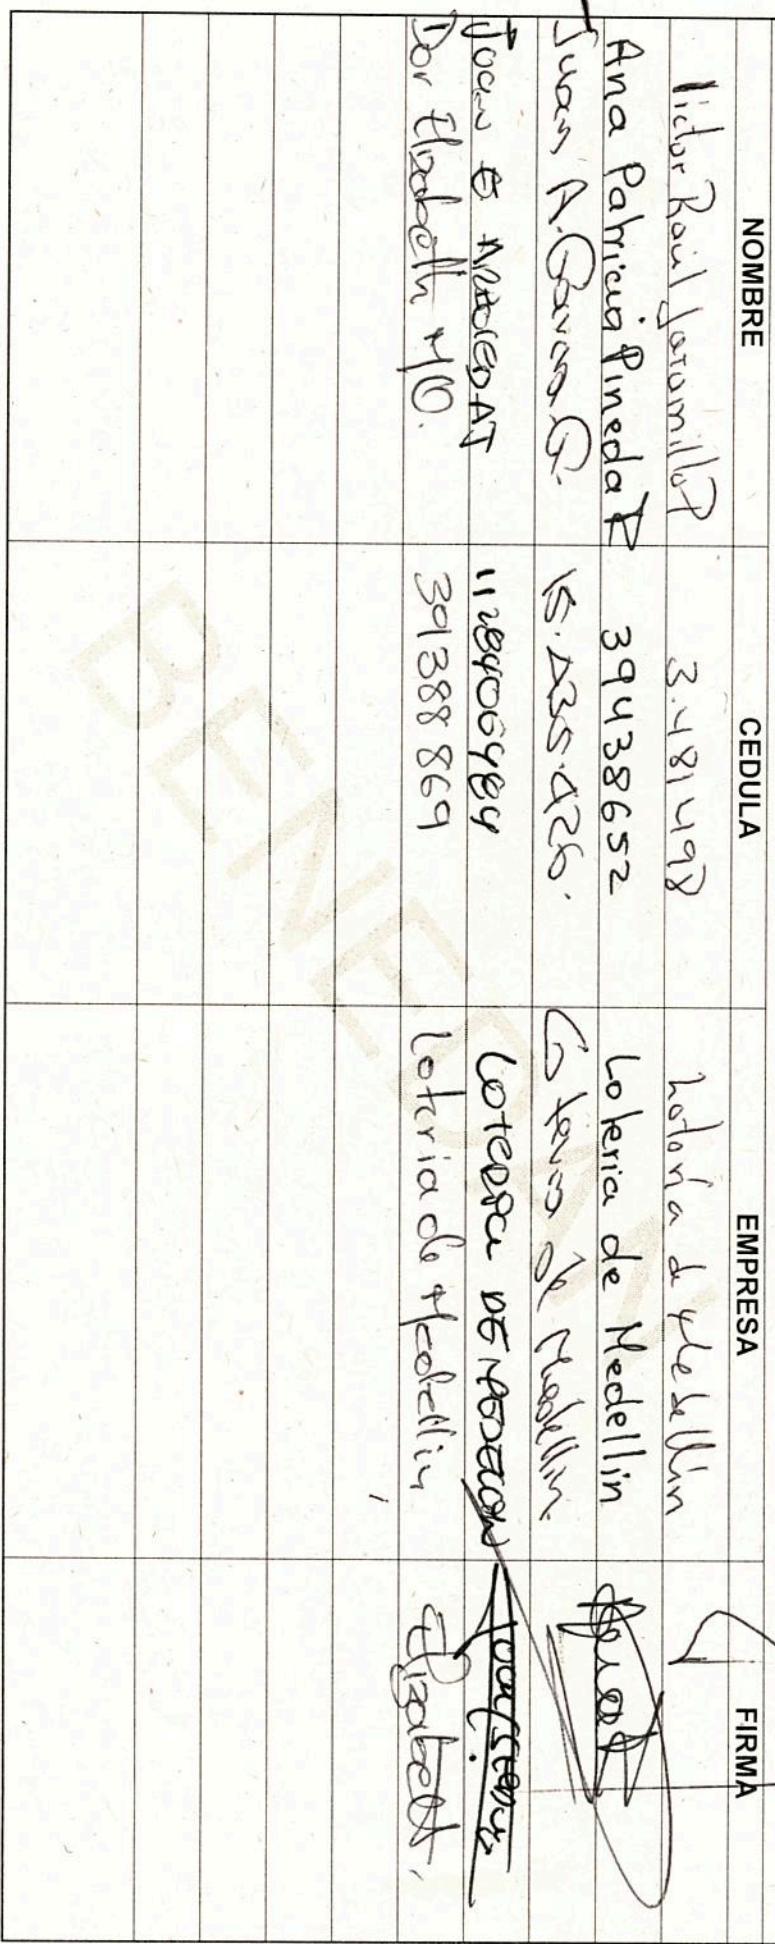 NOMBRE CEDULA EMPRESA FIRMA
Victor Raúl Jaramillo P 3.481498 Lotoria de Medellin
Ana Patricia Pineda 39438652 Loteria de Medellin
Juan A. Garcia G. 15.435.426. Loteria de Medellin.
Juan E 1128406484 LOTERIA DE MEDELLIN
Elizabeth 39388869 Loteria de Medellin Elizabeth.
BENEDAN